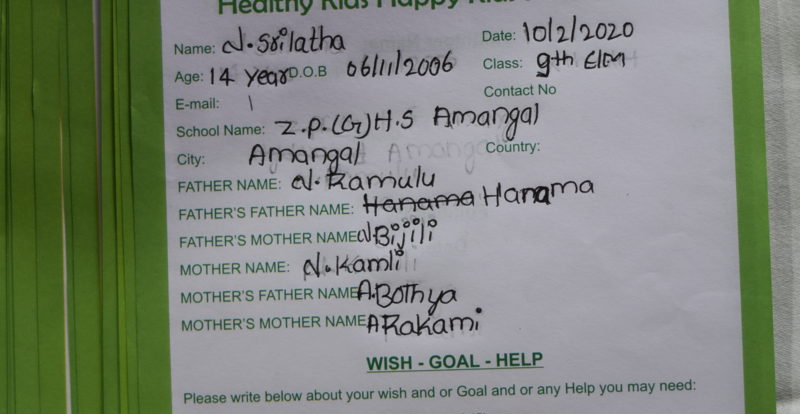 Healthy Kids Happy Kids
Name: N. Srilatha Date: 10/2/2020
Age: 14 year D.O.B 06/11/2006 Class: 9th E/M
E-mail: Contact No
School Name: Z.P.(G)H.S Amangal
City: Amangal Country:
FATHER NAME: N. Ramulu
FATHER'S FATHER NAME: Hanama Hanama
FATHER'S MOTHER NAME N Bijili
MOTHER NAME: N. Kamli
MOTHER'S FATHER NAME A. Bothya
MOTHER'S MOTHER NAME A Rakami
WISH - GOAL - HELP
Please write below about your wish and or Goal and or any Help you may need: